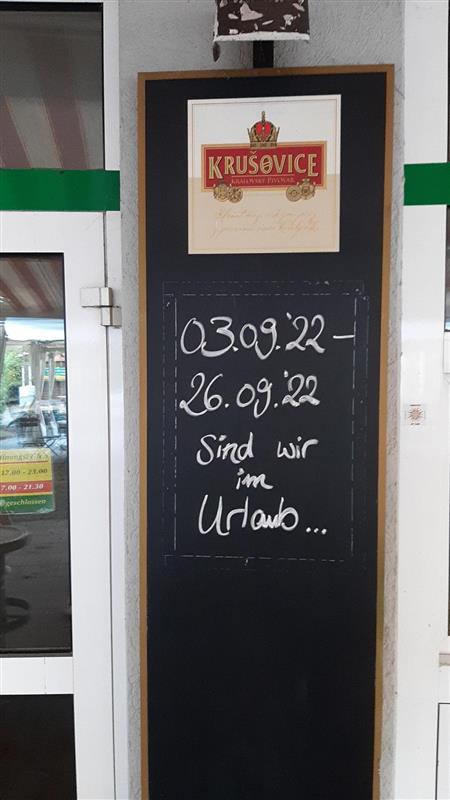 KRUŠOVICE
KRÁLOVSKÝ PIVOVAR
03.09.'22 –
26.09.'22
Sind wir
im
Urlaub...
17.00 - 23.00
7.00 - 21.30
geschlossen